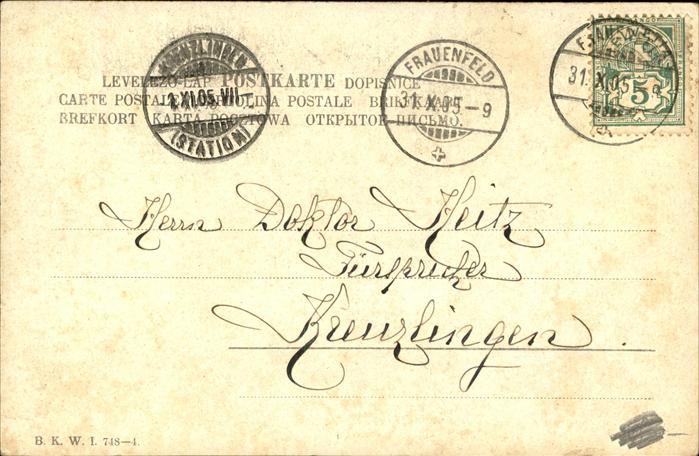 KREUZLINGEN
1.XI.05.VII-
(STATION)
FRAUENFELD
31.X.05-9
FRAUENFELD
31.X.05-9
HELVETIA
5
LEVELEZŐ-LAP POSTKARTE DOPISNICE
CARTE POSTALE CARTOLINA POSTALE BRIEFKAART
BREFKORT KARTA POCZTOWA ОТКРЫТОЕ ПИСЬМО.
Herrn Doktor Heitz
Fürsprecher
Kreuzlingen
B. K. W. I. 748-4.